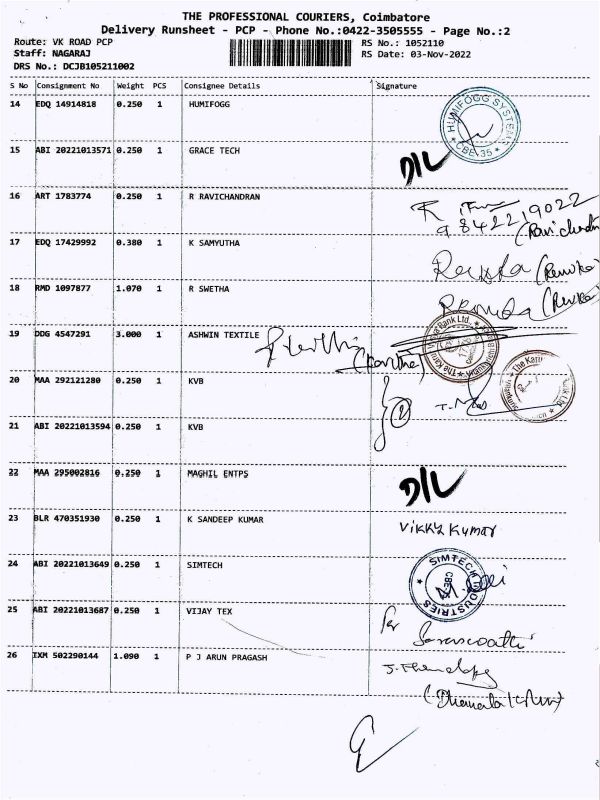 THE PROFESSIONAL COURIERS, Coimbatore
Delivery Runsheet - PCP - Phone No.:0422-3505555 - Page No.:2
Route: VK ROAD PCP RS No.: 1052110
Staff: NAGARAJ RS Date: 03-Nov-2022
DRS No.: DCJB105211002
S No Consignment No Weight PCS Consignee Details Signature
14 EDQ 14914818 0.250 1 HUMIFOGG
HUMIFOGG SYSTEMS CBE-35
15 ABI 20221013571 0.250 1 GRACE TECH D/L
16 ART 1783774 0.250 1 R RAVICHANDRAN
9842219022
17 EDQ 17429992 0.380 1 K SAMYUTHA (Renuka)
18 RMD 1097877 1.070 1 R SWETHA (Renuka)
19 DDG 4547291 3.000 1 ASHWIN TEXTILE
20 MAA 292121280 0.250 1 KVB
21 ABI 20221013594 0.250 1 KVB
22 MAA 295002816 0.250 1 MAGHIL ENTPS D/L
23 BLR 470351930 0.250 1 K SANDEEP KUMAR Vikky Kumar
24 ABI 20221013649 0.250 1 SIMTECH
SIMTECH INDUSTRIES CBE
25 ABI 20221013687 0.250 1 VIJAY TEX
26 IXM 502290144 1.090 1 P J ARUN PRAGASH